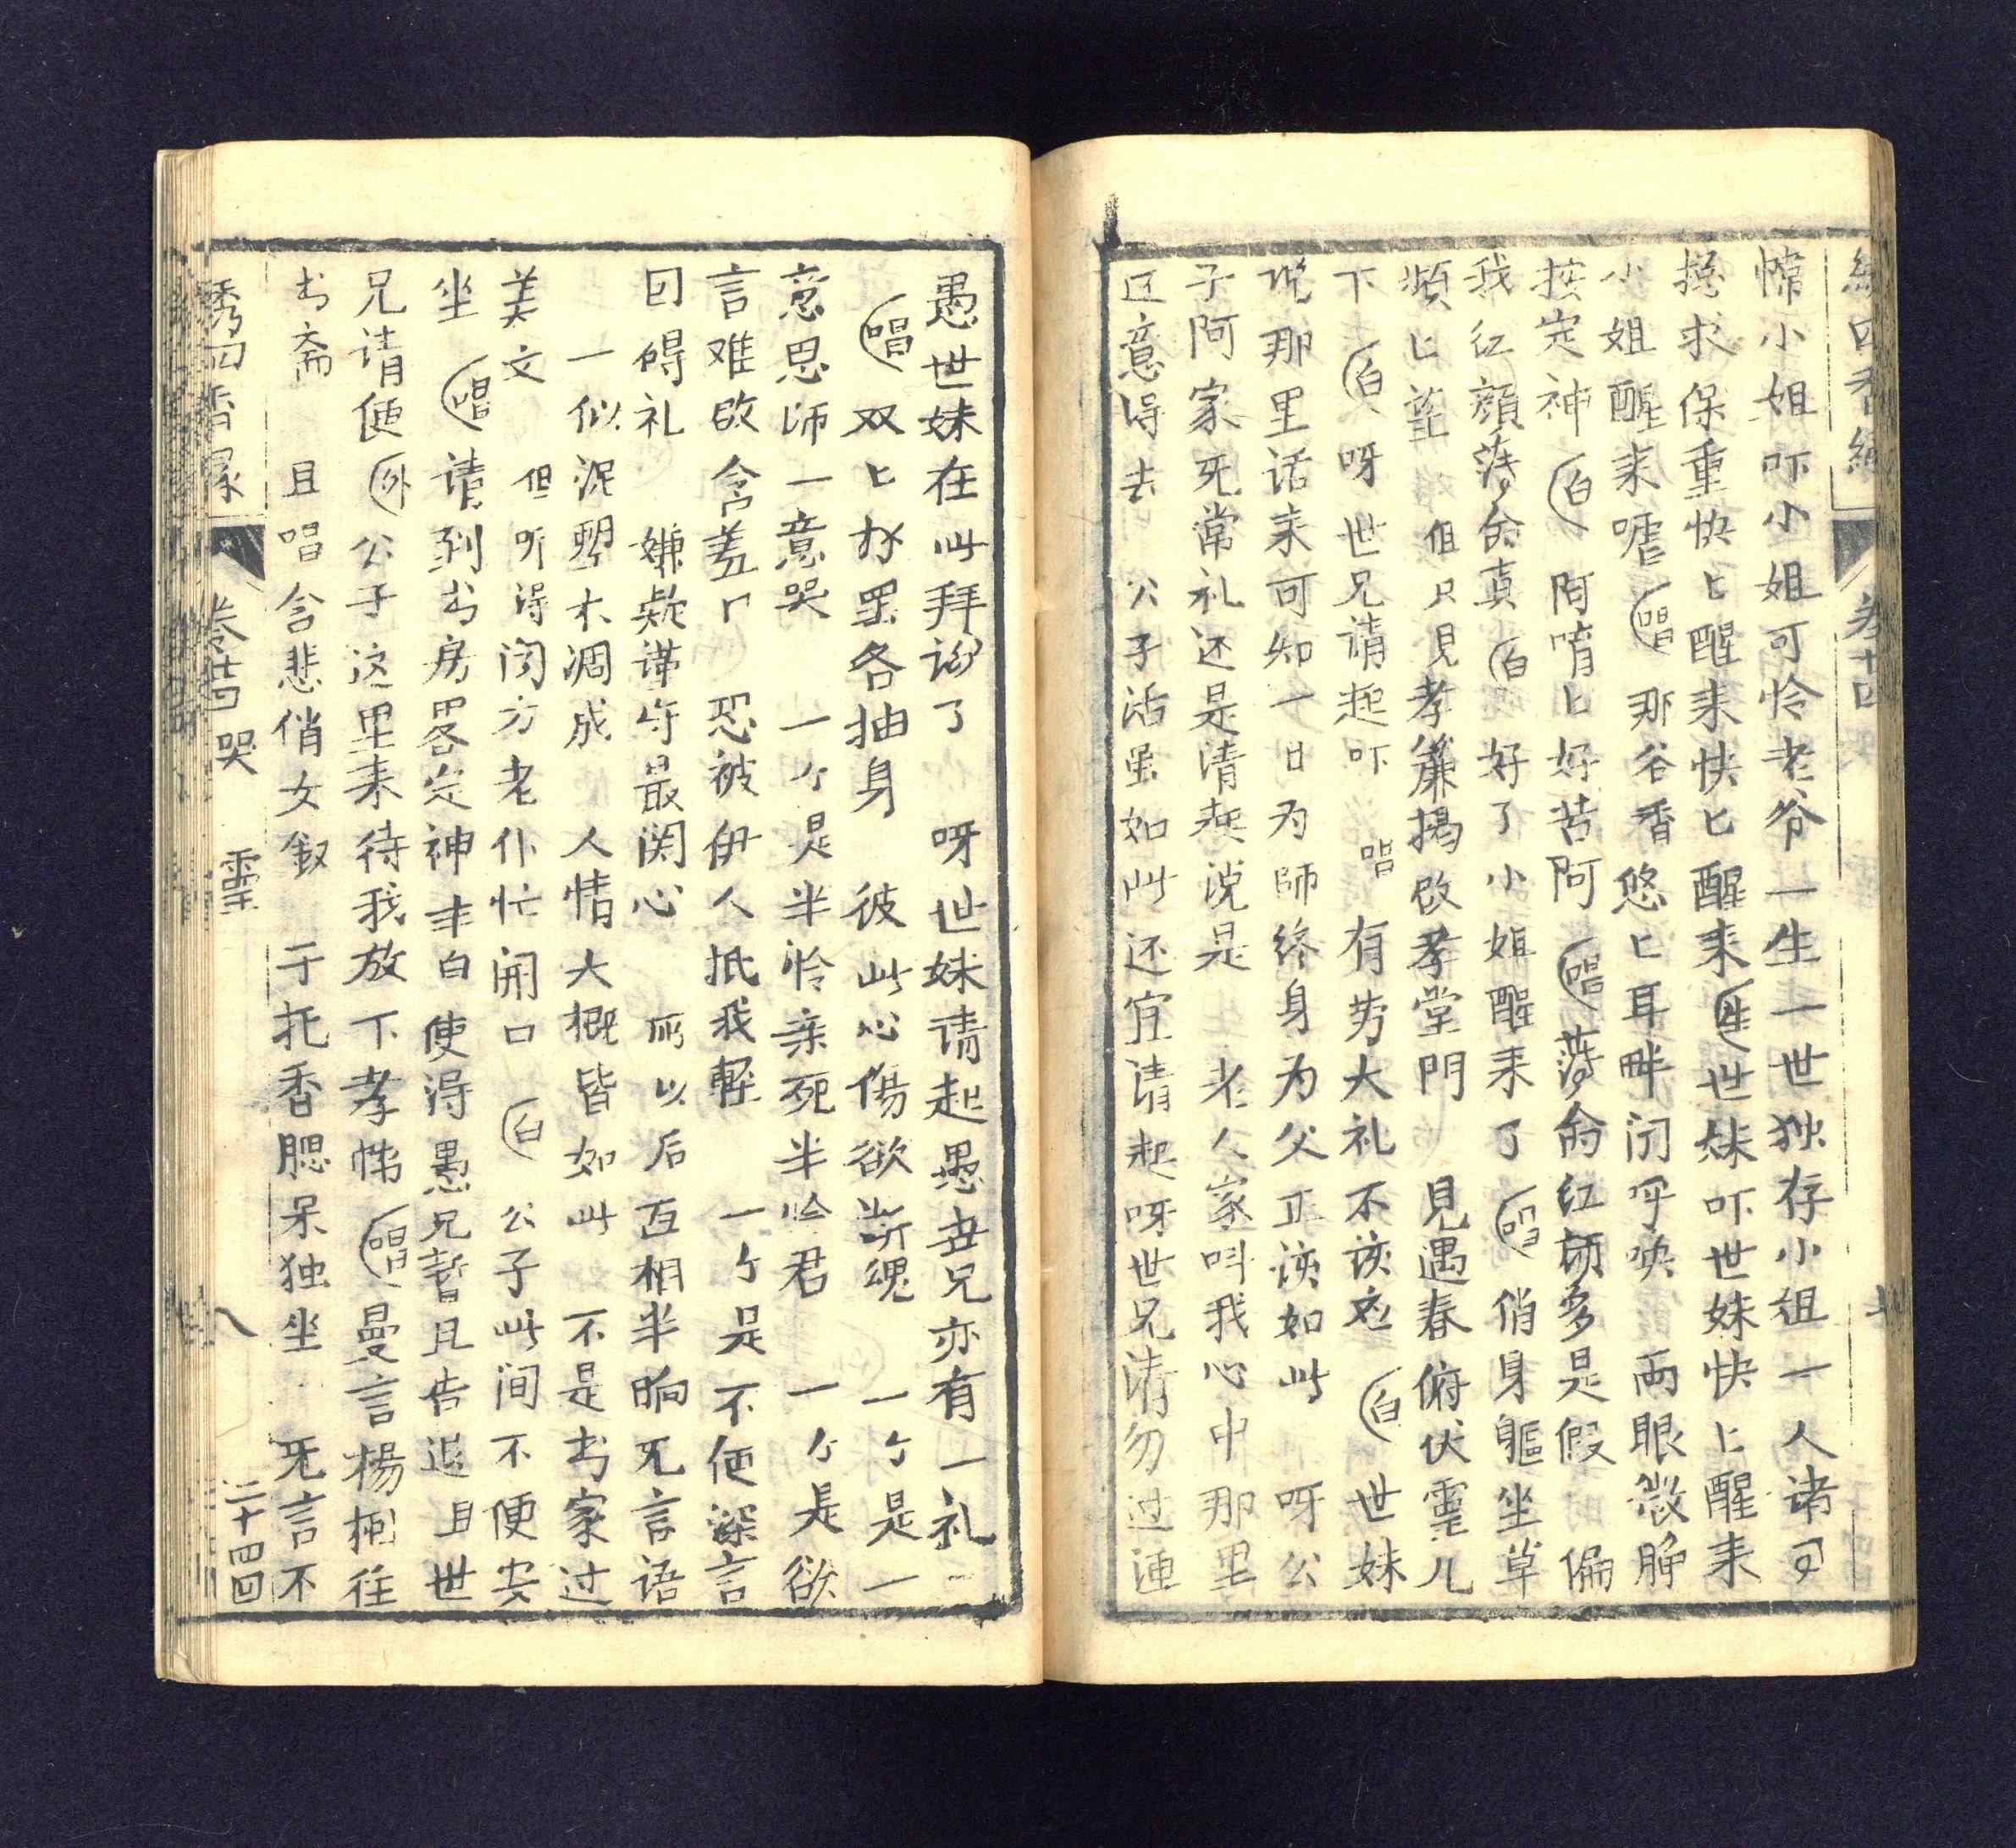 卷十四
悌小姐吓小姐可怜老爷一生一世独存小姐一人诸可
求保重快匕醒来快匕醒来生世妹吓世妹快匕醒来
小姐醒来嚏唱那谷香悠匕耳畔闻呼唤两眼微睁
按定神白阿唷匕好苦阿唱薄命红颜多是假偏
我红顏薄命真白好了小姐醒来了唱俏身軀坐草
頻匕望但只見孝簾揭啟孝堂門見遇春俯伏霊儿
下白呀世兄请起吓唱有劳大礼不该应白世妹
说那里话来可知一日为師终身为父正该如此呀公
子阿家死常礼还是清起说是老人家叫我心中那里
过意得去公子话虽如此还宜请起呀世兄清勿过
愚世妹在此拜谢了呀世妹请起愚世兄亦有一礼
唱双匕拜罢各抽身彼此心傷欲断魂一个是一
意思师一意哭一个是半怜亲死半怜君一个是欲
言难啟含羞恐被伊人抵我輕一个是不便深言
回碍礼嫌疑谨守最関心所以后百相半晌旡言语
一似泥塑木凋成人情大概皆如此不是书家过
美文但听得闵方老仆忙開口白公子此间不便安
坐唱请到书房畧定神丰白使得愚兄暫且告退旦世
兄请便外公子这里来待我放下孝悌唱曼言楊相往
书斋且唱含悲俏女釵于托香腮呆独坐旡言不
秀四香冢卷廿四哭霊八二十四回